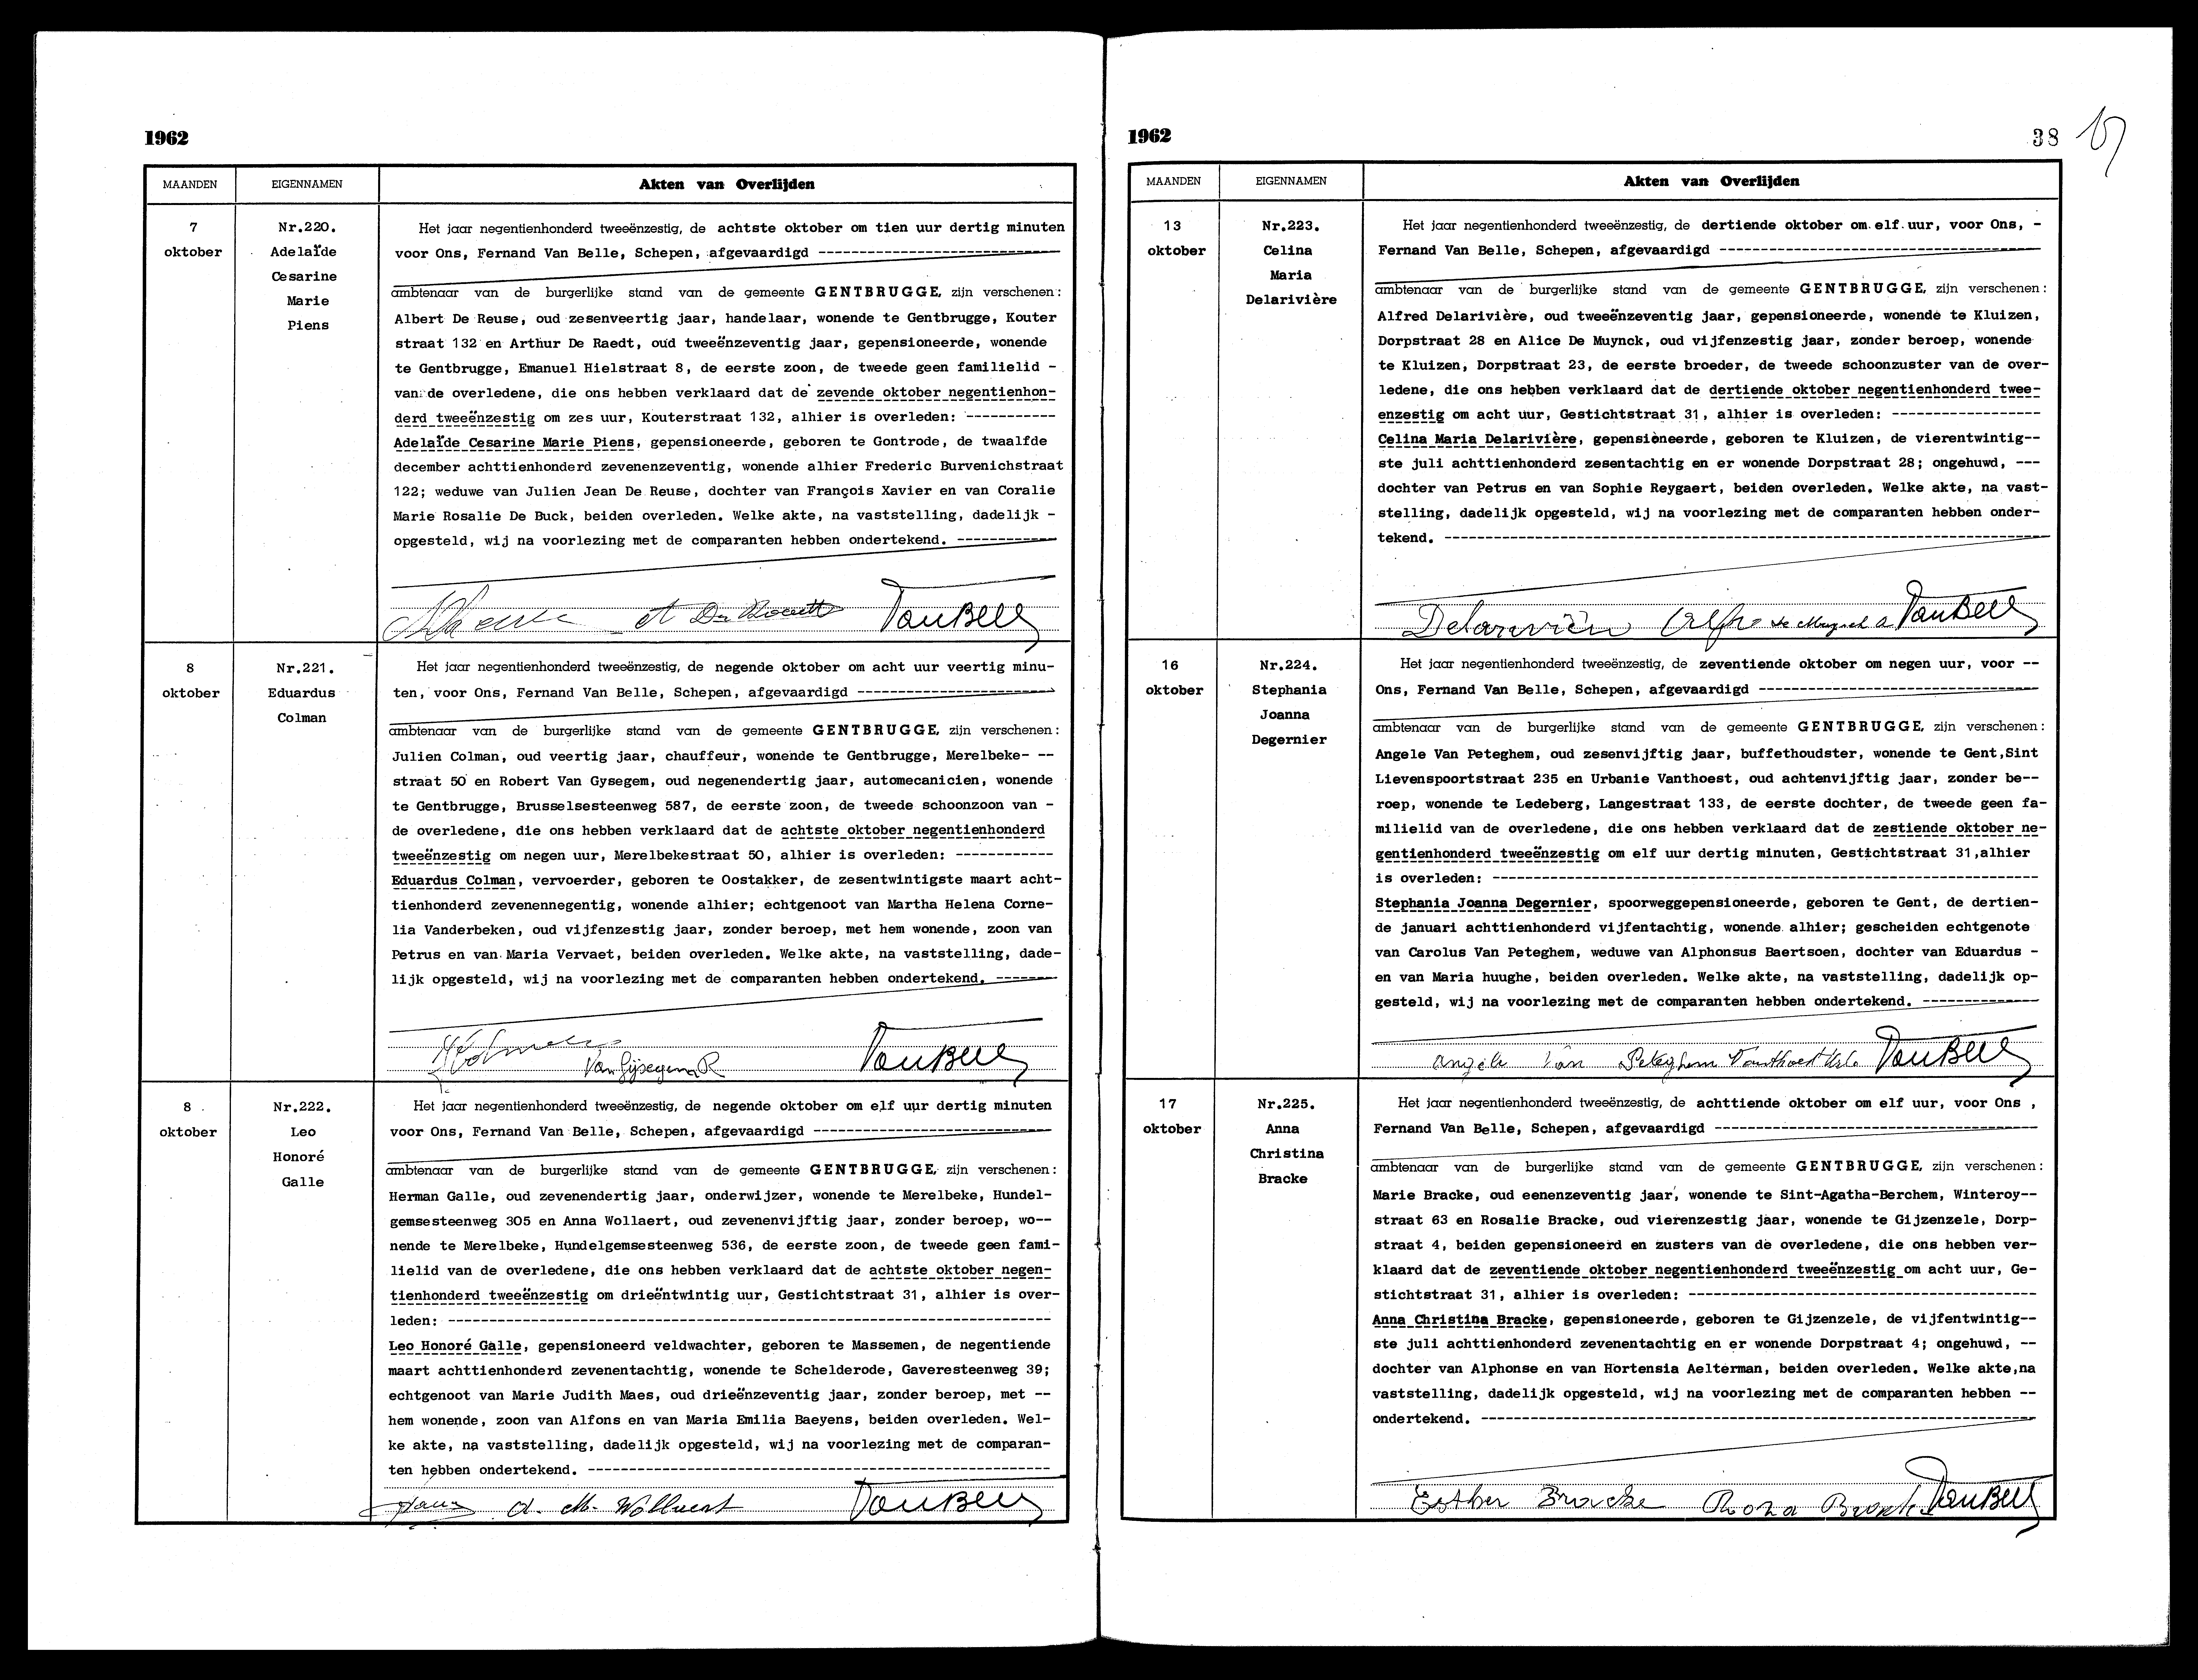 1962
MAANDEN EIGENNAMEN Akten van Overlijden
7
oktober
Nr.220.
Adelaïde
Cesarine
Marie
Piens
Het jaar negentienhonderd tweeënzestig, de achtste oktober om tien uur dertig minuten
voor Ons, Fernand Van Belle, Schepen, afgevaardigd
ambtenaar van de burgerlijke stand van de gemeente GENTBRUGGE, zijn verschenen:
Albert De Reuse, oud zesenveertig jaar, handelaar, wonende te Gentbrugge, Kouter
straat 132 en Arthur De Raedt, oud tweeënzeventig jaar, gepensioneerde, wonende
te Gentbrugge, Emanuel Hielstraat 8, de eerste zoon, de tweede geen familielid -
van de overledene, die ons hebben verklaard dat de zevende oktober negentienhon-
derd tweeënzestig om zes uur, Kouterstraat 132, alhier is overleden: ------------
Adelaïde Cesarine Marie Piens, gepensioneerde, geboren te Gontrode, de twaalfde
december achttienhonderd zevenenzeventig, wonende alhier Frederic Burvenichstraat
122; weduwe van Julien Jean De Reuse, dochter van François Xavier en van Coralie
Marie Rosalie De Buck, beiden overleden. Welke akte, na vaststelling, dadelijk -
opgesteld, wij na voorlezing met de comparanten hebben ondertekend. ------------
VanBelle
8
oktober
Nr.221.
Eduardus
Colman
Het jaar negentienhonderd tweeënzestig, de negende oktober om acht uur veertig minu-
ten, voor Ons, Fernand Van Belle, Schepen, afgevaardigd ------------------------
ambtenaar van de burgerlijke stand van de gemeente GENTBRUGGE, zijn verschenen:
Julien Colman, oud veertig jaar, chauffeur, wonende te Gentbrugge, Merelbeke- --
straat 50 en Robert Van Gysegem, oud negenendertig jaar, automecanicien, wonende
te Gentbrugge, Brusselsesteenweg 587, de eerste zoon, de tweede schoonzoon van -
de overledene, die ons hebben verklaard dat de achtste oktober negentienhonderd
tweeënzestig om negen uur, Merelbekestraat 50, alhier is overleden: ------------
Eduardus Colman, vervoerder, geboren te Oostakker, de zesentwintigste maart acht-
tienhonderd zevenennegentig, wonende alhier; echtgenoot van Martha Helena Corne-
lia Vanderbeken, oud vijfenzestig jaar, zonder beroep, met hem wonende, zoon van
Petrus en van Maria Vervaet, beiden overleden. Welke akte, na vaststelling, dade-
lijk opgesteld, wij na voorlezing met de comparanten hebben ondertekend. -------
Van Gijsegem R VanBelle
8
oktober
Nr.222.
Leo
Honoré
Galle
Het jaar negentienhonderd tweeënzestig, de negende oktober om elf uur dertig minuten
voor Ons, Fernand Van Belle, Schepen, afgevaardigd -----------------------------
ambtenaar van de burgerlijke stand van de gemeente GENTBRUGGE, zijn verschenen:
Herman Galle, oud zevenendertig jaar, onderwijzer, wonende te Merelbeke, Hundel-
gemsesteenweg 305 en Anna Wollaert, oud zevenenvijftig jaar, zonder beroep, wo--
nende te Merelbeke, Hundelgemsesteenweg 536, de eerste zoon, de tweede geen fami-
lielid van de overledene, die ons hebben verklaard dat de achtste oktober negen-
tienhonderd tweeënzestig om drieëntwintig uur, Gestichtstraat 31, alhier is over-
leden: -------------------------------------------------------------------------
Leo Honoré Galle, gepensioneerd veldwachter, geboren te Massemen, de negentiende
maart achttienhonderd zevenentachtig, wonende te Schelderode, Gaveresteenweg 39;
echtgenoot van Marie Judith Maes, oud drieënzeventig jaar, zonder beroep, met --
hem wonende, zoon van Alfons en van Maria Emilia Baeyens, beiden overleden. Wel-
ke akte, na vaststelling, dadelijk opgesteld, wij na voorlezing met de comparan-
ten hebben ondertekend. --------------------------------------------------------
Wollaert VanBelle
1962 38
MAANDEN EIGENNAMEN Akten van Overlijden
13
oktober
Nr.223.
Celina
Maria
Delarivière
Het jaar negentienhonderd tweeënzestig, de dertiende oktober om elf uur, voor Ons, -
Fernand Van Belle, Schepen, afgevaardigd ---------------------------------------
ambtenaar van de burgerlijke stand van de gemeente GENTBRUGGE, zijn verschenen:
Alfred Delarivière, oud tweeënzeventig jaar, gepensioneerde, wonende te Kluizen,
Dorpstraat 28 en Alice De Muynck, oud vijfenzestig jaar, zonder beroep, wonende
te Kluizen, Dorpstraat 23, de eerste broeder, de tweede schoonzuster van de over-
ledene, die ons hebben verklaard dat de dertiende oktober negentienhonderd twee-
enzestig om acht uur, Gestichtstraat 31, alhier is overleden: ------------------
Celina Maria Delarivière, gepensioneerde, geboren te Kluizen, de vierentwintig--
ste juli achttienhonderd zesentachtig en er wonende Dorpstraat 28; ongehuwd, ---
dochter van Petrus en van Sophie Reygaert, beiden overleden. Welke akte, na vast-
stelling, dadelijk opgesteld, wij na voorlezing met de comparanten hebben onder-
tekend. ------------------------------------------------------------------------
VanBelle
16
oktober
Nr.224.
Stephania
Joanna
Degernier
Het jaar negentienhonderd tweeënzestig, de zeventiende oktober om negen uur, voor --
Ons, Fernand Van Belle, Schepen, afgevaardigd ----------------------------------
ambtenaar van de burgerlijke stand van de gemeente GENTBRUGGE, zijn verschenen:
Angele Van Peteghem, oud zesenvijftig jaar, buffethoudster, wonende te Gent,Sint
Lievenspoortstraat 235 en Urbanie Vanthoest, oud achtenvijftig jaar, zonder be--
roep, wonende te Ledeberg, Langestraat 133, de eerste dochter, de tweede geen fa-
milielid van de overledene, die ons hebben verklaard dat de zestiende oktober ne-
gentienhonderd tweeënzestig om elf uur dertig minuten, Gestichtstraat 31,alhier
is overleden: ------------------------------------------------------------------
Stephania Joanna Degernier, spoorweggepensioneerde, geboren te Gent, de dertien-
de januari achttienhonderd vijfentachtig, wonende alhier; gescheiden echtgenote
van Carolus Van Peteghem, weduwe van Alphonsus Baertsoen, dochter van Eduardus -
en van Maria huughe, beiden overleden. Welke akte, na vaststelling, dadelijk op-
gesteld, wij na voorlezing met de comparanten hebben ondertekend. --------------
Angele Van Peteghem VanBelle
17
oktober
Nr.225.
Anna
Christina
Bracke
Het jaar negentienhonderd tweeënzestig, de achttiende oktober om elf uur, voor Ons ,
Fernand Van Belle, Schepen, afgevaardigd ---------------------------------------
ambtenaar van de burgerlijke stand van de gemeente GENTBRUGGE, zijn verschenen:
Marie Bracke, oud eenenzeventig jaar, wonende te Sint-Agatha-Berchem, Winteroy--
straat 63 en Rosalie Bracke, oud vierenzestig jaar, wonende te Gijzenzele, Dorp-
straat 4, beiden gepensioneerd en zusters van de overledene, die ons hebben ver-
klaard dat de zeventiende oktober negentienhonderd tweeënzestig om acht uur, Ge-
stichtstraat 31, alhier is overleden: ------------------------------------------
Anna Christina Bracke, gepensioneerde, geboren te Gijzenzele, de vijfentwintig--
ste juli achttienhonderd zevenentachtig en er wonende Dorpstraat 4; ongehuwd, --
dochter van Alphonse en van Hortensia Aelterman, beiden overleden. Welke akte,na
vaststelling, dadelijk opgesteld, wij na voorlezing met de comparanten hebben --
ondertekend. -------------------------------------------------------------------
Esther Bracke Roza Bracke VanBelle